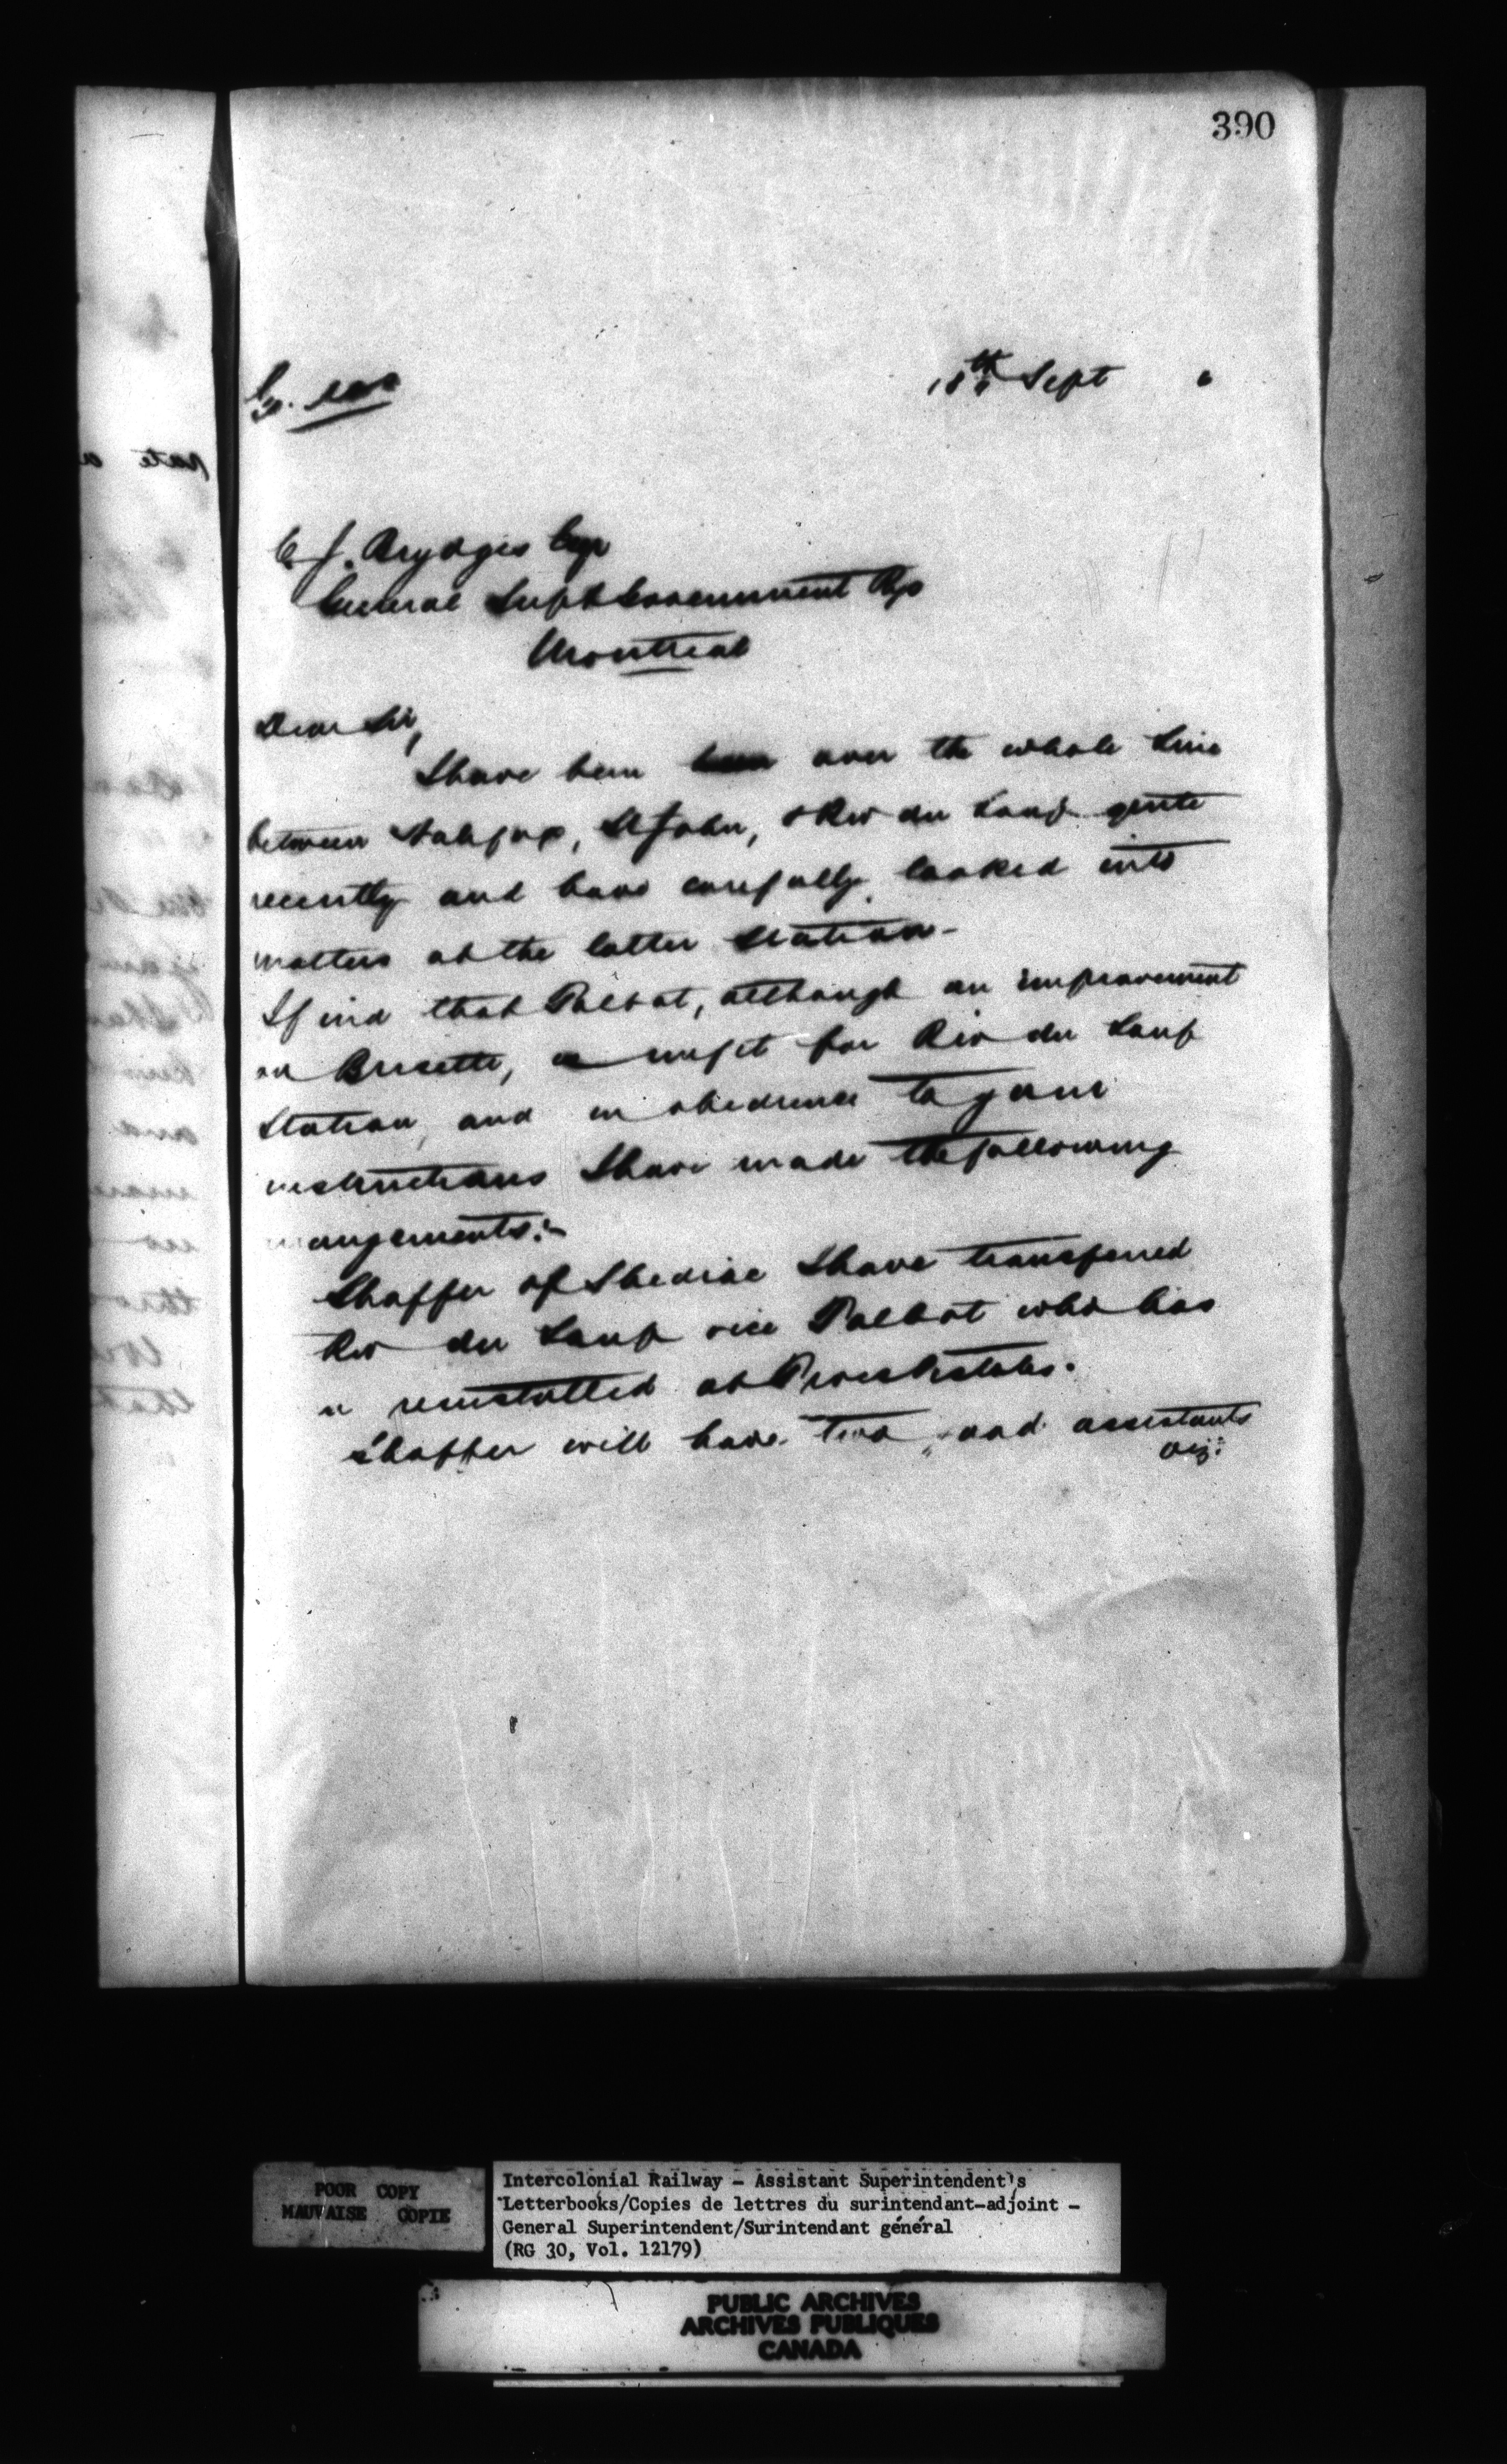 390
18th Sept
C. J. Brydges Esq
General Supt Government Rys
Montreal
Dear Sir,
I have been over the whole line
between Halifax, St John, & Riv du Loup quite
recently and have carefully looked into
matters at the latter station -
I find that Talbot, although an improvement
on Brisette, is unfit for Riv du Loup
station, and in obedience to your
instructions I have made the following
angements:-
Shaffer of Shediac I have transferred
Riv du Loup vice Talbot who has
reinstalled at Trois Pistoles.
Shaffer will have two good assistants
viz:
POOR COPY
MAUVAISE COPIE
Intercolonial Railway - Assistant Superintendent's
Letterbooks/Copies de lettres du surintendant-adjoint -
General Superintendent/Surintendant général
(RG 30, Vol. 12179)
PUBLIC ARCHIVES
ARCHIVES PUBLIQUES
CANADA